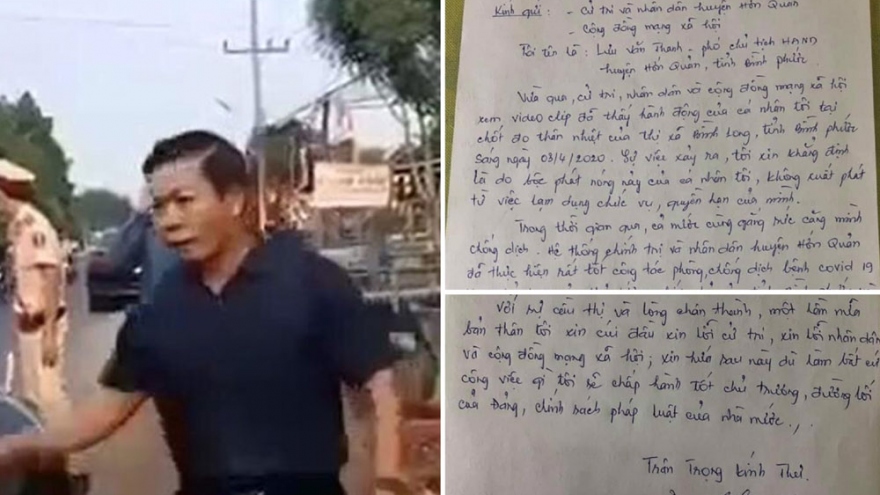 Kính gửi: - Cử tri và nhân dân huyện Hớn Quản
- Cộng đồng mạng xã hội
Tôi tên là: Lưu Văn Thanh - phó chủ tịch HĐND
huyện Hớn Quản, tỉnh Bình Phước.
Vừa qua, cử tri, nhân dân và cộng đồng mạng xã hội
xem video clip đã thấy hành động của cá nhân tôi tại
chốt đo thân nhiệt của thị xã Bình Long, tỉnh Bình Phước
sáng ngày 03/4/2020. Sự việc xảy ra, tôi xin khẳng định
là do bộc phát nóng nảy của cá nhân tôi, không xuất phát
từ việc lạm dụng chức vụ, quyền hạn của mình.
Trong thời gian qua, cả nước cùng gồng sức căng mình
chống dịch. Hệ thống chính trị và nhân dân huyện Hớn Quản
đã thực hiện rất tốt công tác phòng, chống dịch bệnh covid 19
Với sự cầu thị và lòng chân thành, một lần nữa
bản thân tôi xin cúi đầu xin lỗi cử tri, xin lỗi nhân dân
và cộng đồng mạng xã hội; xin hứa sau này dù làm bất cứ
công việc gì tôi sẽ chấp hành tốt chủ trương, đường lối
của Đảng, chính sách pháp luật của nhà nước./.
Trân Trọng kính Thư.